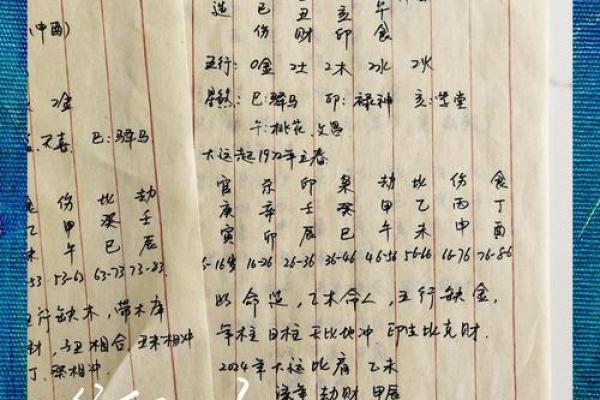 (申酉)
2金
天喜 巳:驿马
伤 比 劫
乙 甲 癸 壬
未 午 巳 辰
53 53-63 63-73 73-83
五行缺木,带木库
财,子丑相合,丑未相冲
丁癸相冲.
造 巳 丑 亥 午
伤 财 印 食
五行: 0金 2土 2木 2水 2火
星煞: 巳:驿马 卯:禄神 亥:学堂
午:桃花、文昌
大运起1972年立春
官 杀 印 枭 劫 比 伤 食
庚 辛 壬 癸 甲 乙 丙 丁
寅 卯 辰 巳 午 未 申 酉
6-16岁 16-26 26-36 36-46 46-56 56-66 66-76 76-86
此命造,乙木命人,五行缺金.
年柱日柱天比地冲 印生比克财.
2024年大运比肩 乙未
流年 劫财 甲辰